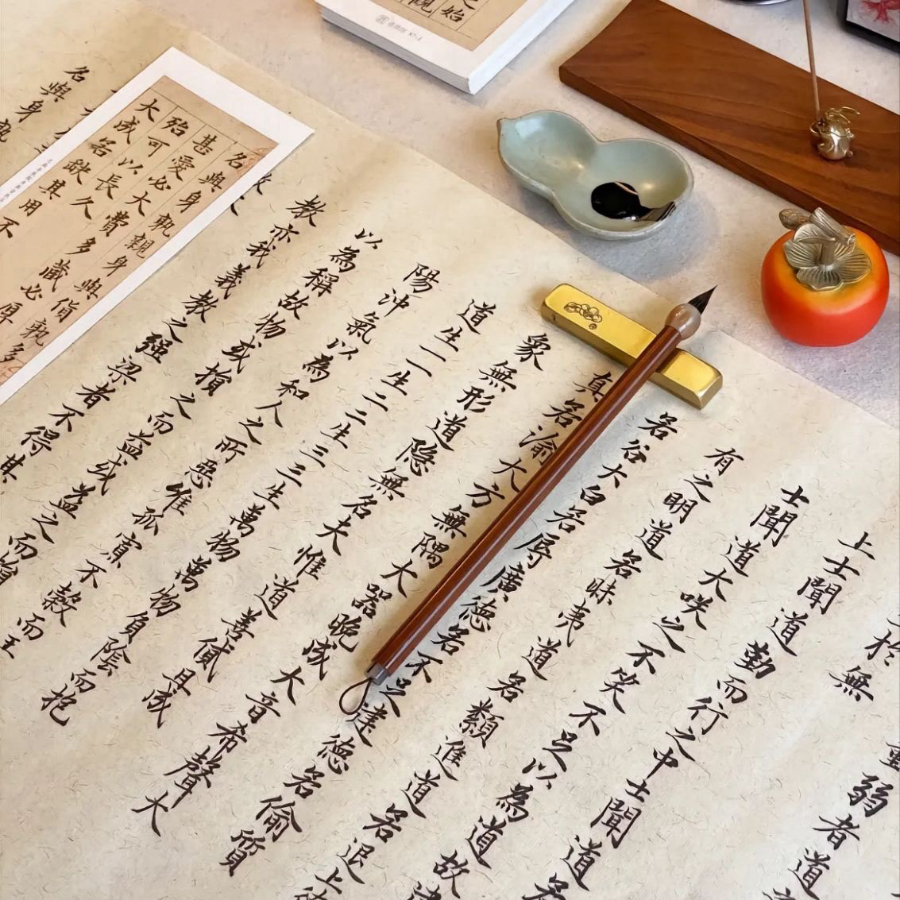 於無
弱者道之
上士聞道勤而行之中士聞道若
士聞道大咲之不笑不足以為道故建
有之明道若昧夷道若纇進道若退上德
若谷大白若辱廣德若不足建德若偷質
真若渝大方無隅大器晚成大音希聲大
象無形道隐無名夫惟道善貸且成
道生一一生二二生三三生萬物萬物負陰而抱
陽沖氣以為和人之所惡惟孤寡不穀而王
以為稱故物或損之而益或益之而損
教亦我義教之強梁者不得其
名與身孰
名與身孰親身與貨孰多
甚愛必大費多藏必厚
殆可以長久
大成若缺其用不
之始
觀